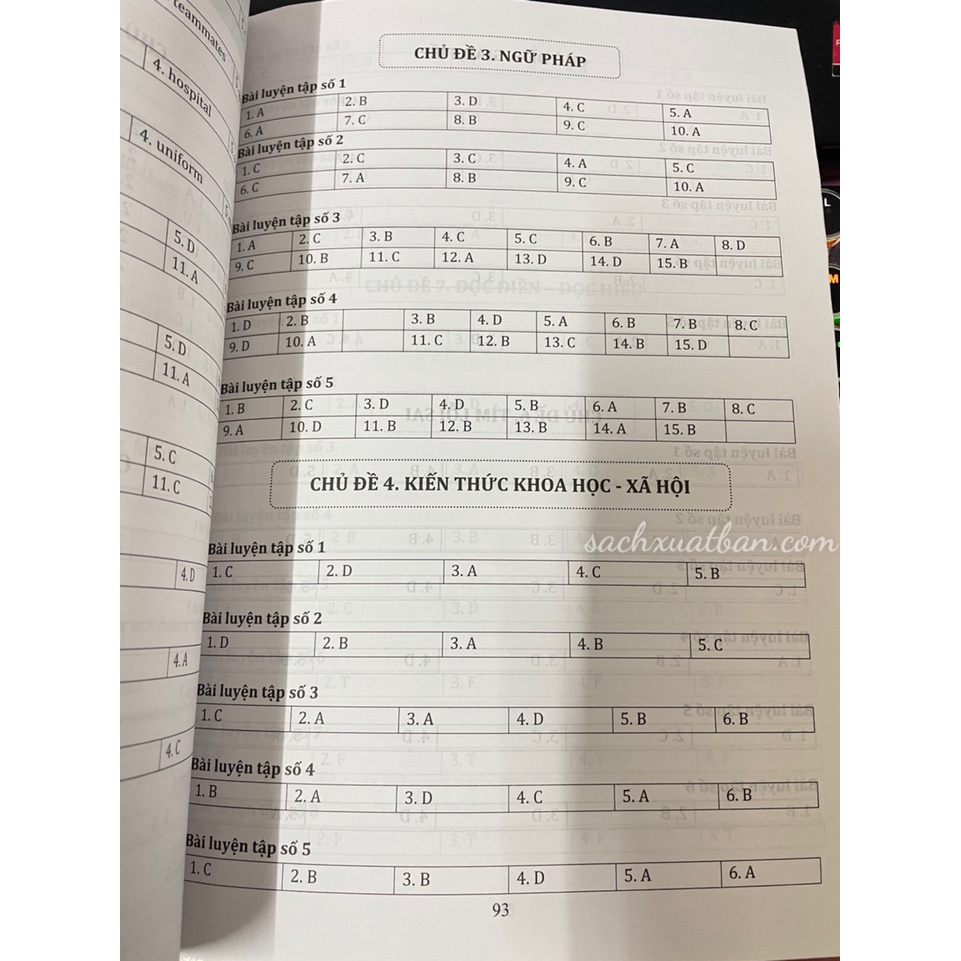 teammates
4. hospital
4. uniform
5. D
11. A
5. D
11. A
5. C
11. C
4. D
4. A
4. C
CHỦ ĐỀ 3. NGỮ PHÁP
Bài luyện tập số 1
1. A 2. B 3. D 4. C 5. A
6. A 7. C 8. B 9. C 10. A
Bài luyện tập số 2
1. C 2. C 3. C 4. A 5. C
6. C 7. A 8. B 9. C 10. A
Bài luyện tập số 3
1. A 2. C 3. B 4. C 5. C 6. B 7. A 8. D
9. C 10. B 11. C 12. A 13. D 14. D 15. B
Bài luyện tập số 4
1. D 2. B 3. B 4. D 5. A 6. B 7. B 8. C
9. D 10. A 11. C 12. B 13. C 14. B 15. D
Bài luyện tập số 5
1. B 2. C 3. D 4. D 5. B 6. A 7. B 8. C
9. A 10. D 11. B 12. B 13. B 14. A 15. B
CHỦ ĐỀ 4. KIẾN THỨC KHOA HỌC - XÃ HỘI
sachxuatban.com
Bài luyện tập số 1
1. C 2. D 3. A 4. C 5. B
Bài luyện tập số 2
1. D 2. B 3. A 4. B 5. C
Bài luyện tập số 3
1. C 2. A 3. A 4. D 5. B 6. B
Bài luyện tập số 4
1. B 2. A 3. D 4. C 5. A 6. B
Bài luyện tập số 5
1. C 2. B 3. B 4. D 5. A 6. A
93